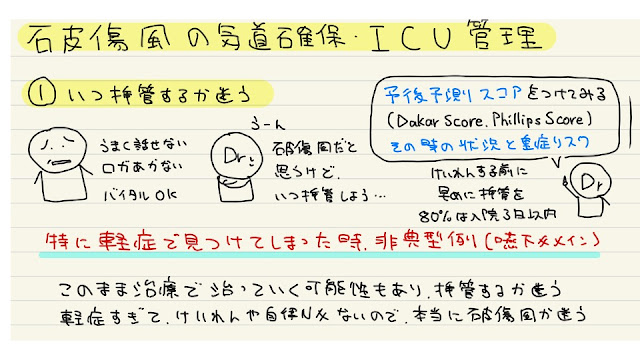 破傷風の気道確保・ICU管理
① いつ挿管するか迷う
うまく話せない
口があかない
バイタルOK
Dr
うーん
破傷風だと
思うけど、
いつ挿管しよう…
予後予測スコアをつけてみる
(Dakar Score. Phillips Score)
その時の状況と重症リスク
けいれんする前に
早めに挿管を
80%は入院3日以内
Dr
特に軽症で見つけてしまった時、非典型例(嚥下✗メイン)
このまま治療で治っていく可能性もあり、挿管するか迷う
軽症すぎて、けいれんや自律N✗ないので、本当に破傷風か迷う